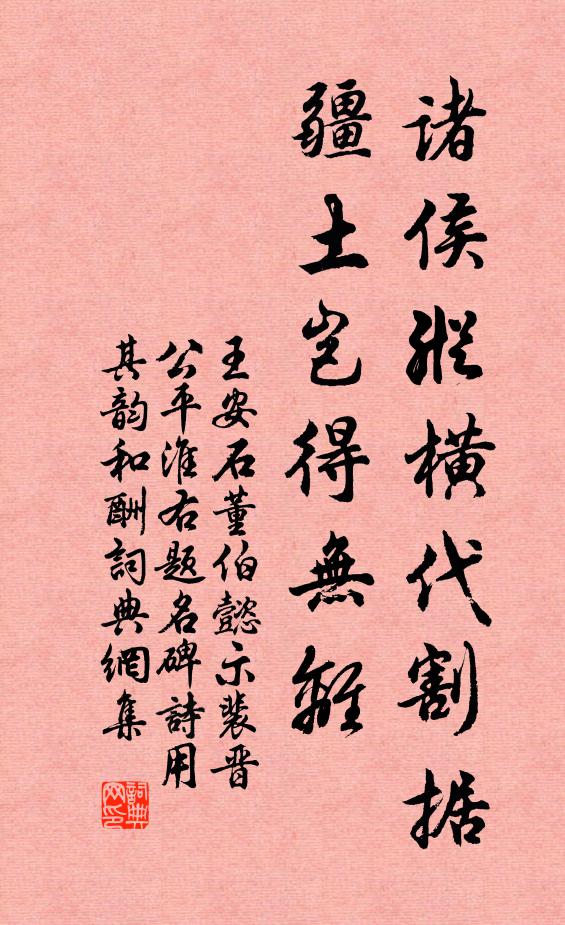 诸侯縱橫代割据
疆土岂得無離
王安石董伯懿示裴晋
公平淮右题名碑詩用
其韵和酬詞典網集
詞典
网印